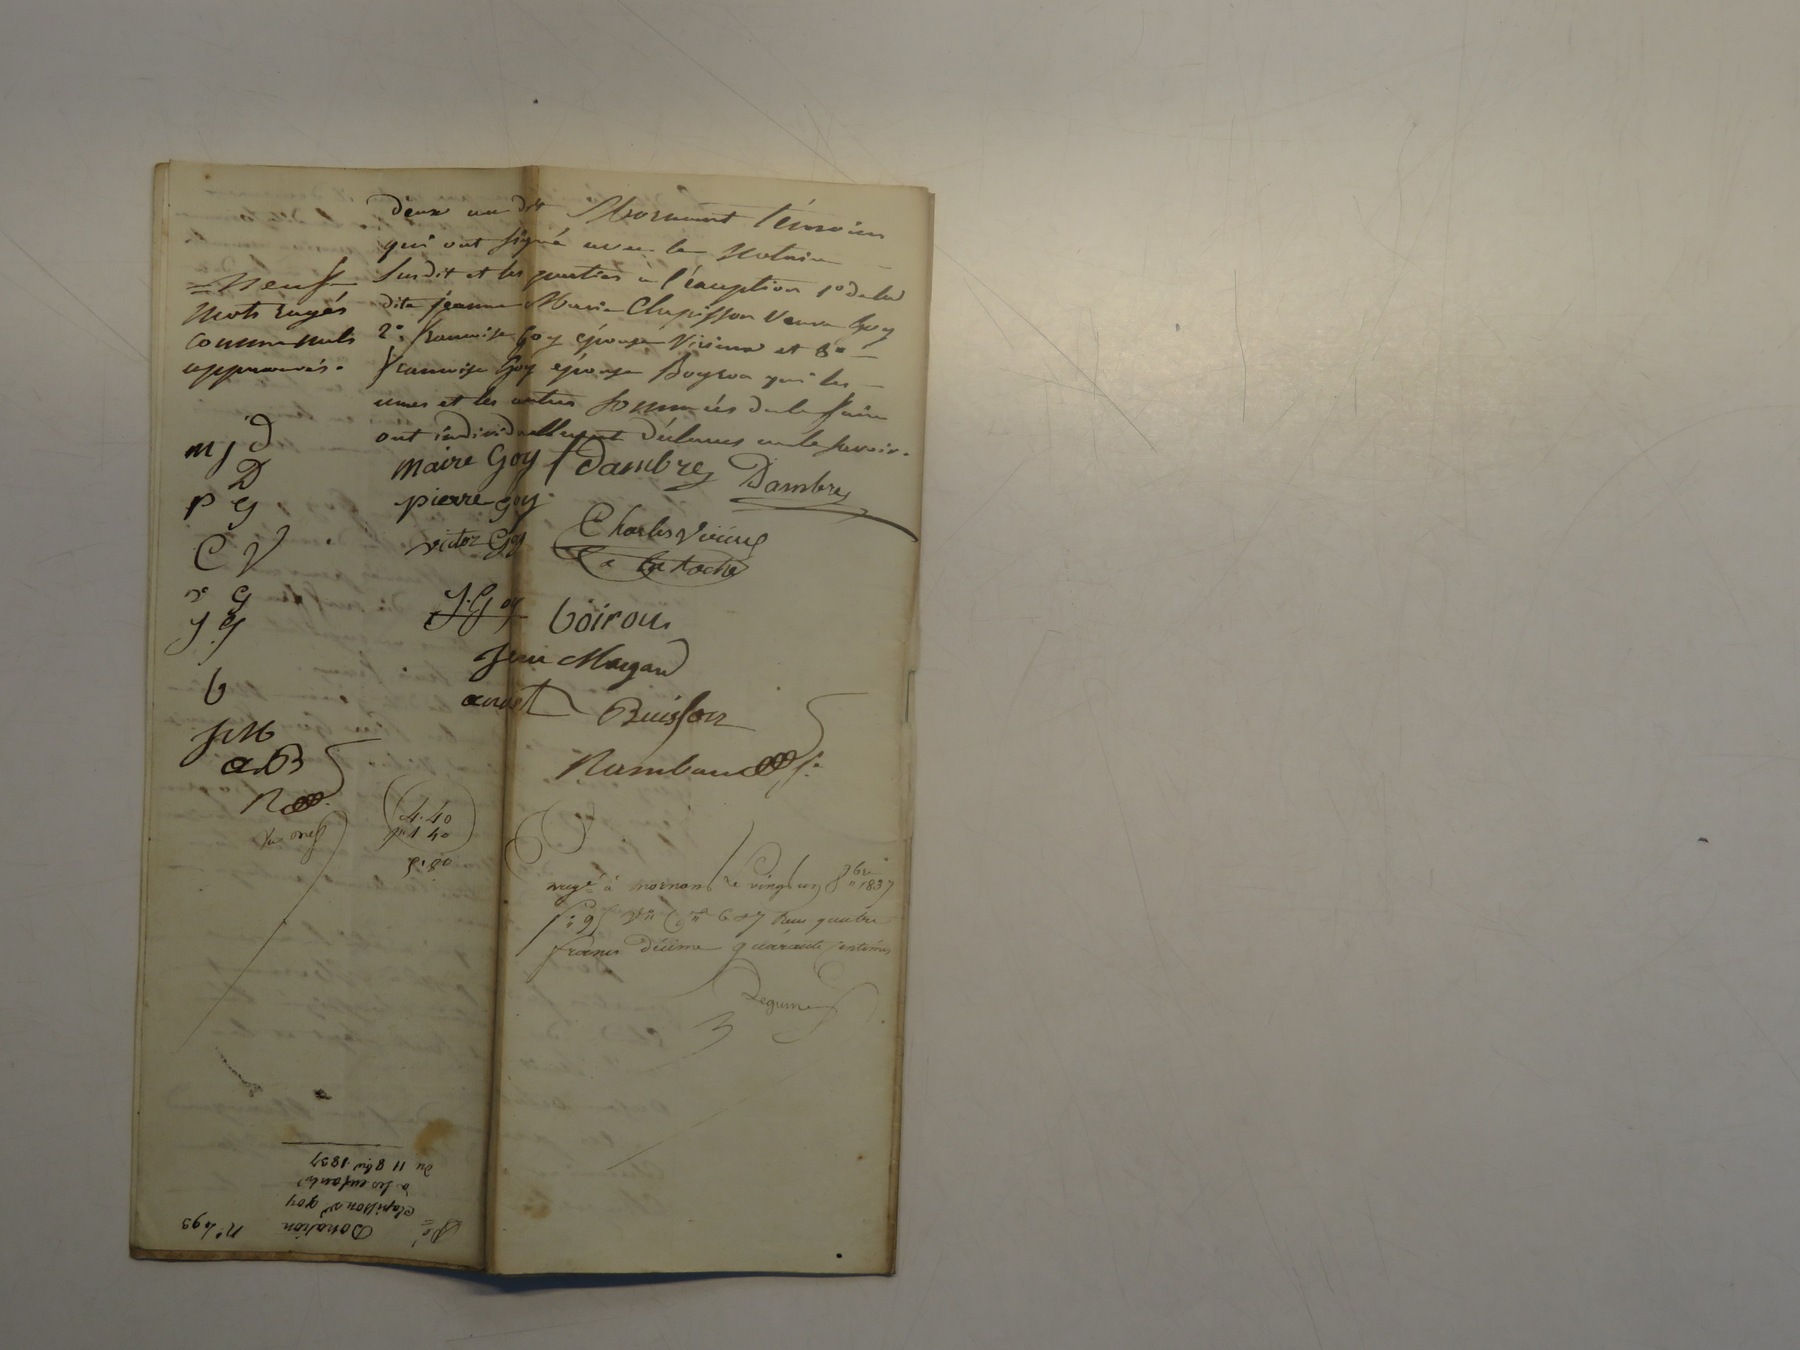 deux au dit Mornant témoins
qui ont signé avec le Notaire
susdit et les parties à l'éxception 1° de la
dite jeanne Marie Clapisson Veuve Goy
2° françoise Goy épouse Virieux et 3°
françoise Goy épouse Boyron qui les
unes et les autres sommées de le faire
ont individuellement déclarés ne le savoir.
= Neuf
Mots rayés
comme nuls
approuvés.
maire Goy f Dambrey Dambrey
pierre goy
victor Goy Charles Virieux
a la Roche
J. Goy Voiron
Jean Mazard
Buisson
Rambaud
m j D
D
P G
C V
v G
J. G
V
J M
a. B
R
4.40
40
5.80
à mornant Le vingt un 8bre 1837
f° 91 V° C 6 et 7 Reçu quatre
francs décime quarante centimes
N° 493
Donation
Clapisson Ve goy
à ses enfants
Du 11 8bre 1837